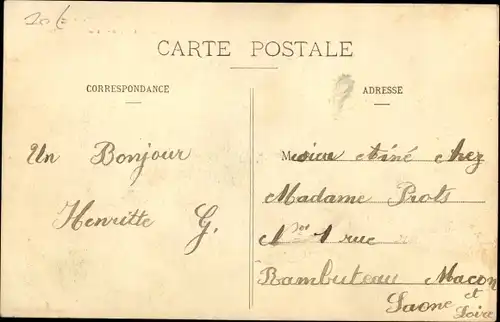 20 €
CARTE POSTALE
CORRESPONDANCE
ADRESSE
Un Bonjour
Henritte G.
Aîné chez
Madame Prots
1 rue
Rambuteau Macon
Saone et
Loire